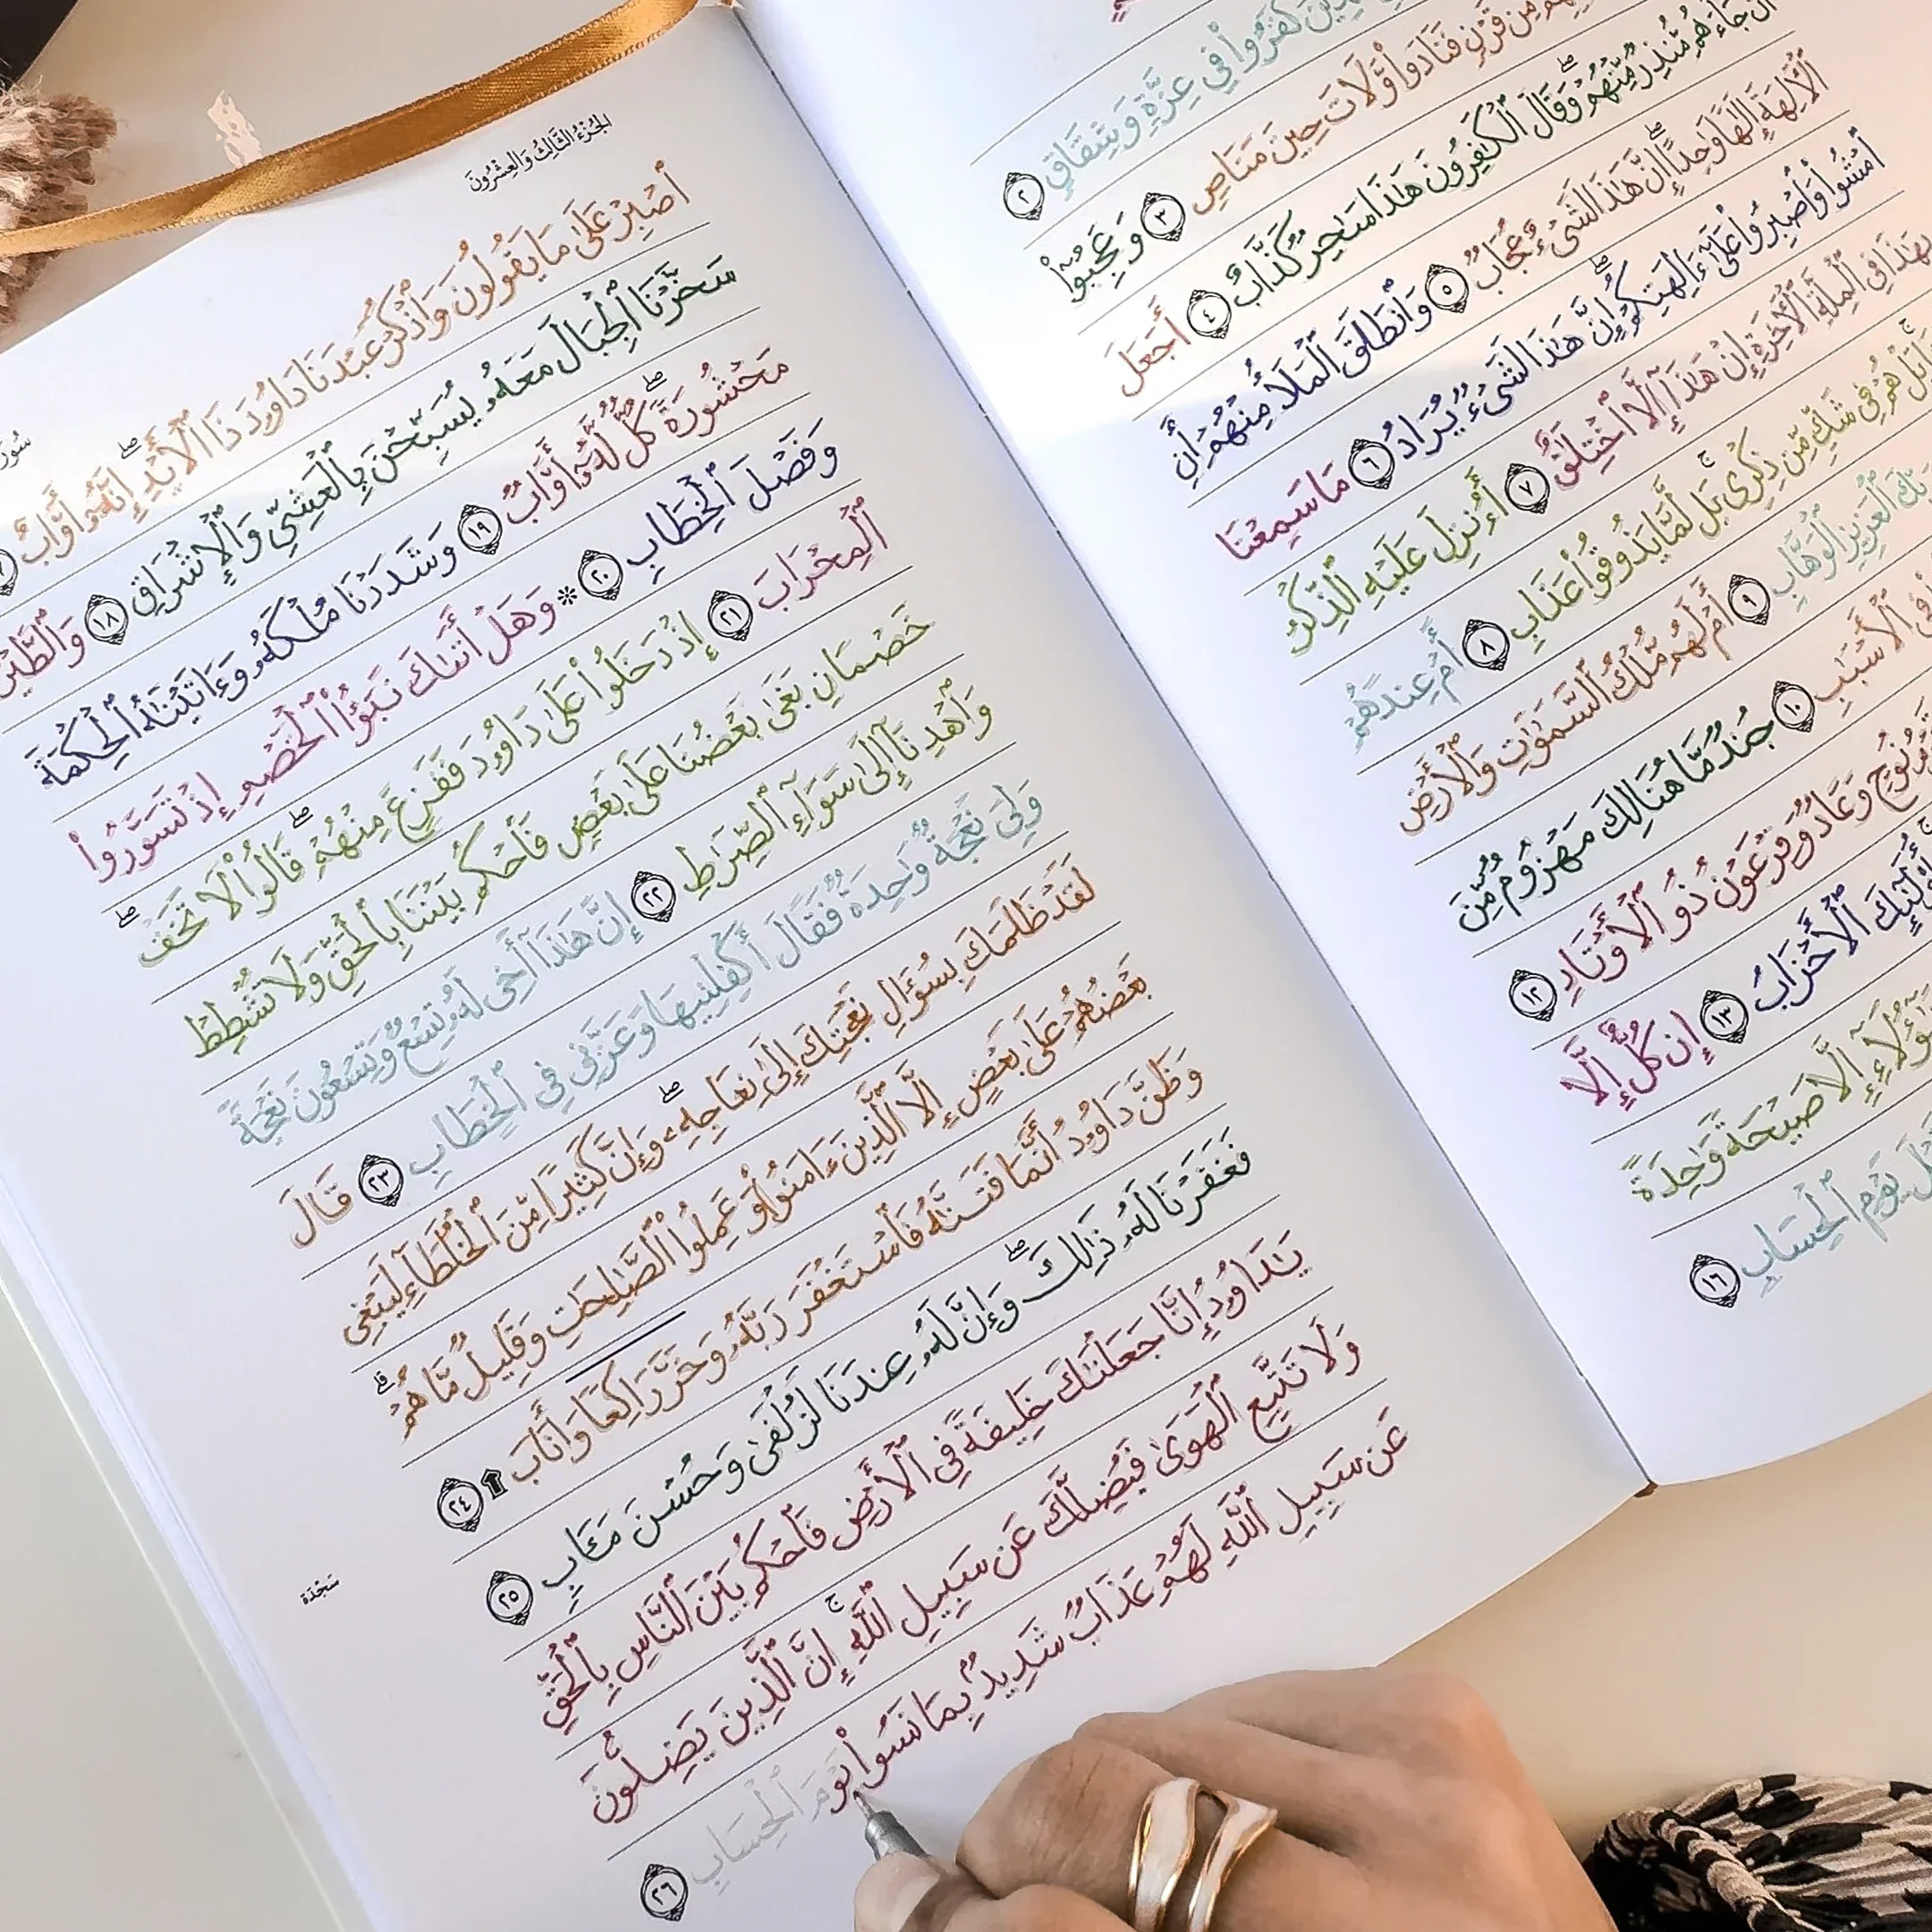 كَفَرُوا۟ فِى عِزَّةٍ وَشِقَاقٍ ٢
مِّن قَرْنٍ فَنَادَوا۟ وَّلَاتَ حِينَ مَنَاصٍ ٣ وَعَجِبُوٓا۟
أَن جَآءَهُم مُّنذِرٌ مِّنْهُمْ ۖ وَقَالَ ٱلْكَـٰفِرُونَ هَـٰذَا سَـٰحِرٌ كَذَّابٌ ٤ أَجَعَلَ
ٱلْـَٔالِهَةَ إِلَـٰهًا وَٰحِدًا ۖ إِنَّ هَـٰذَا لَشَىْءٌ عُجَابٌ ٥ وَٱنطَلَقَ ٱلْمَلَأُ مِنْهُمْ أَنِ
ٱمْشُوا۟ وَٱصْبِرُوا۟ عَلَىٰٓ ءَالِهَتِكُمْ ۖ إِنَّ هَـٰذَا لَشَىْءٌ يُرَادُ ٦ مَا سَمِعْنَا
بِهَـٰذَا فِى ٱلْمِلَّةِ ٱلْـَٔاخِرَةِ إِنْ هَـٰذَآ إِلَّا ٱخْتِلَـٰقٌ ٧ أَءُنزِلَ عَلَيْهِ ٱلذِّكْرُ
بَلْ هُمْ فِى شَكٍّ مِّن ذِكْرِى ۖ بَل لَّمَّا يَذُوقُوا۟ عَذَابِ ٨ أَمْ عِندَهُمْ
ٱلْعَزِيزِ ٱلْوَهَّابِ ٩ أَمْ لَهُم مُّلْكُ ٱلسَّمَـٰوَٰتِ وَٱلْأَرْضِ
فِى ٱلْأَسْبَـٰبِ ١٠ جُندٌ مَّا هُنَالِكَ مَهْزُومٌ مِّنَ
نُوحٍ وَعَادٌ وَفِرْعَوْنُ ذُو ٱلْأَوْتَادِ ١٢
ٱلْأَحْزَابُ ١٣ إِن كُلٌّ إِلَّا
إِلَّا صَيْحَةً وَٰحِدَةً
يَوْمِ ٱلْحِسَابِ ١٦
الجُزْءُ الثَّالِثُ وَالعِشْرُونَ
ٱصْبِرْ عَلَىٰ مَا يَقُولُونَ وَٱذْكُرْ عَبْدَنَا دَاوُۥدَ ذَا ٱلْأَيْدِ ۖ إِنَّهُۥٓ أَوَّابٌ
سَخَّرْنَا ٱلْجِبَالَ مَعَهُۥ يُسَبِّحْنَ بِٱلْعَشِىِّ وَٱلْإِشْرَاقِ ١٨ وَٱلطَّيْرَ
مَحْشُورَةً ۖ كُلٌّ لَّهُۥٓ أَوَّابٌ ١٩ وَشَدَدْنَا مُلْكَهُۥ وَءَاتَيْنَـٰهُ ٱلْحِكْمَةَ
وَفَصْلَ ٱلْخِطَابِ ٢٠ * وَهَلْ أَتَىٰكَ نَبَؤُا۟ ٱلْخَصْمِ إِذْ تَسَوَّرُوا۟
ٱلْمِحْرَابَ ٢١ إِذْ دَخَلُوا۟ عَلَىٰ دَاوُۥدَ فَفَزِعَ مِنْهُمْ ۖ قَالُوا۟ لَا تَخَفْ ۖ
خَصْمَانِ بَغَىٰ بَعْضُنَا عَلَىٰ بَعْضٍ فَٱحْكُم بَيْنَنَا بِٱلْحَقِّ وَلَا تُشْطِطْ
وَٱهْدِنَآ إِلَىٰ سَوَآءِ ٱلصِّرَٰطِ ٢٢ إِنَّ هَـٰذَآ أَخِى لَهُۥ تِسْعٌ وَتِسْعُونَ نَعْجَةً
وَلِىَ نَعْجَةٌ وَٰحِدَةٌ فَقَالَ أَكْفِلْنِيهَا وَعَزَّنِى فِى ٱلْخِطَابِ ٢٣ قَالَ
لَقَدْ ظَلَمَكَ بِسُؤَالِ نَعْجَتِكَ إِلَىٰ نِعَاجِهِۦ ۖ وَإِنَّ كَثِيرًا مِّنَ ٱلْخُلَطَآءِ لَيَبْغِى
بَعْضُهُمْ عَلَىٰ بَعْضٍ إِلَّا ٱلَّذِينَ ءَامَنُوا۟ وَعَمِلُوا۟ ٱلصَّـٰلِحَـٰتِ وَقَلِيلٌ مَّا هُمْ ۗ
وَظَنَّ دَاوُۥدُ أَنَّمَا فَتَنَّـٰهُ فَٱسْتَغْفَرَ رَبَّهُۥ وَخَرَّ رَاكِعًا وَأَنَابَ ٢٤
فَغَفَرْنَا لَهُۥ ذَٰلِكَ ۖ وَإِنَّ لَهُۥ عِندَنَا لَزُلْفَىٰ وَحُسْنَ مَـَٔابٍ ٢٥
يَـٰدَاوُۥدُ إِنَّا جَعَلْنَـٰكَ خَلِيفَةً فِى ٱلْأَرْضِ فَٱحْكُم بَيْنَ ٱلنَّاسِ بِٱلْحَقِّ
وَلَا تَتَّبِعِ ٱلْهَوَىٰ فَيُضِلَّكَ عَن سَبِيلِ ٱللَّهِ ۚ إِنَّ ٱلَّذِينَ يَضِلُّونَ
عَن سَبِيلِ ٱللَّهِ لَهُمْ عَذَابٌ شَدِيدٌۢ بِمَا نَسُوا۟ يَوْمَ ٱلْحِسَابِ ٢٦
سَجْدَة